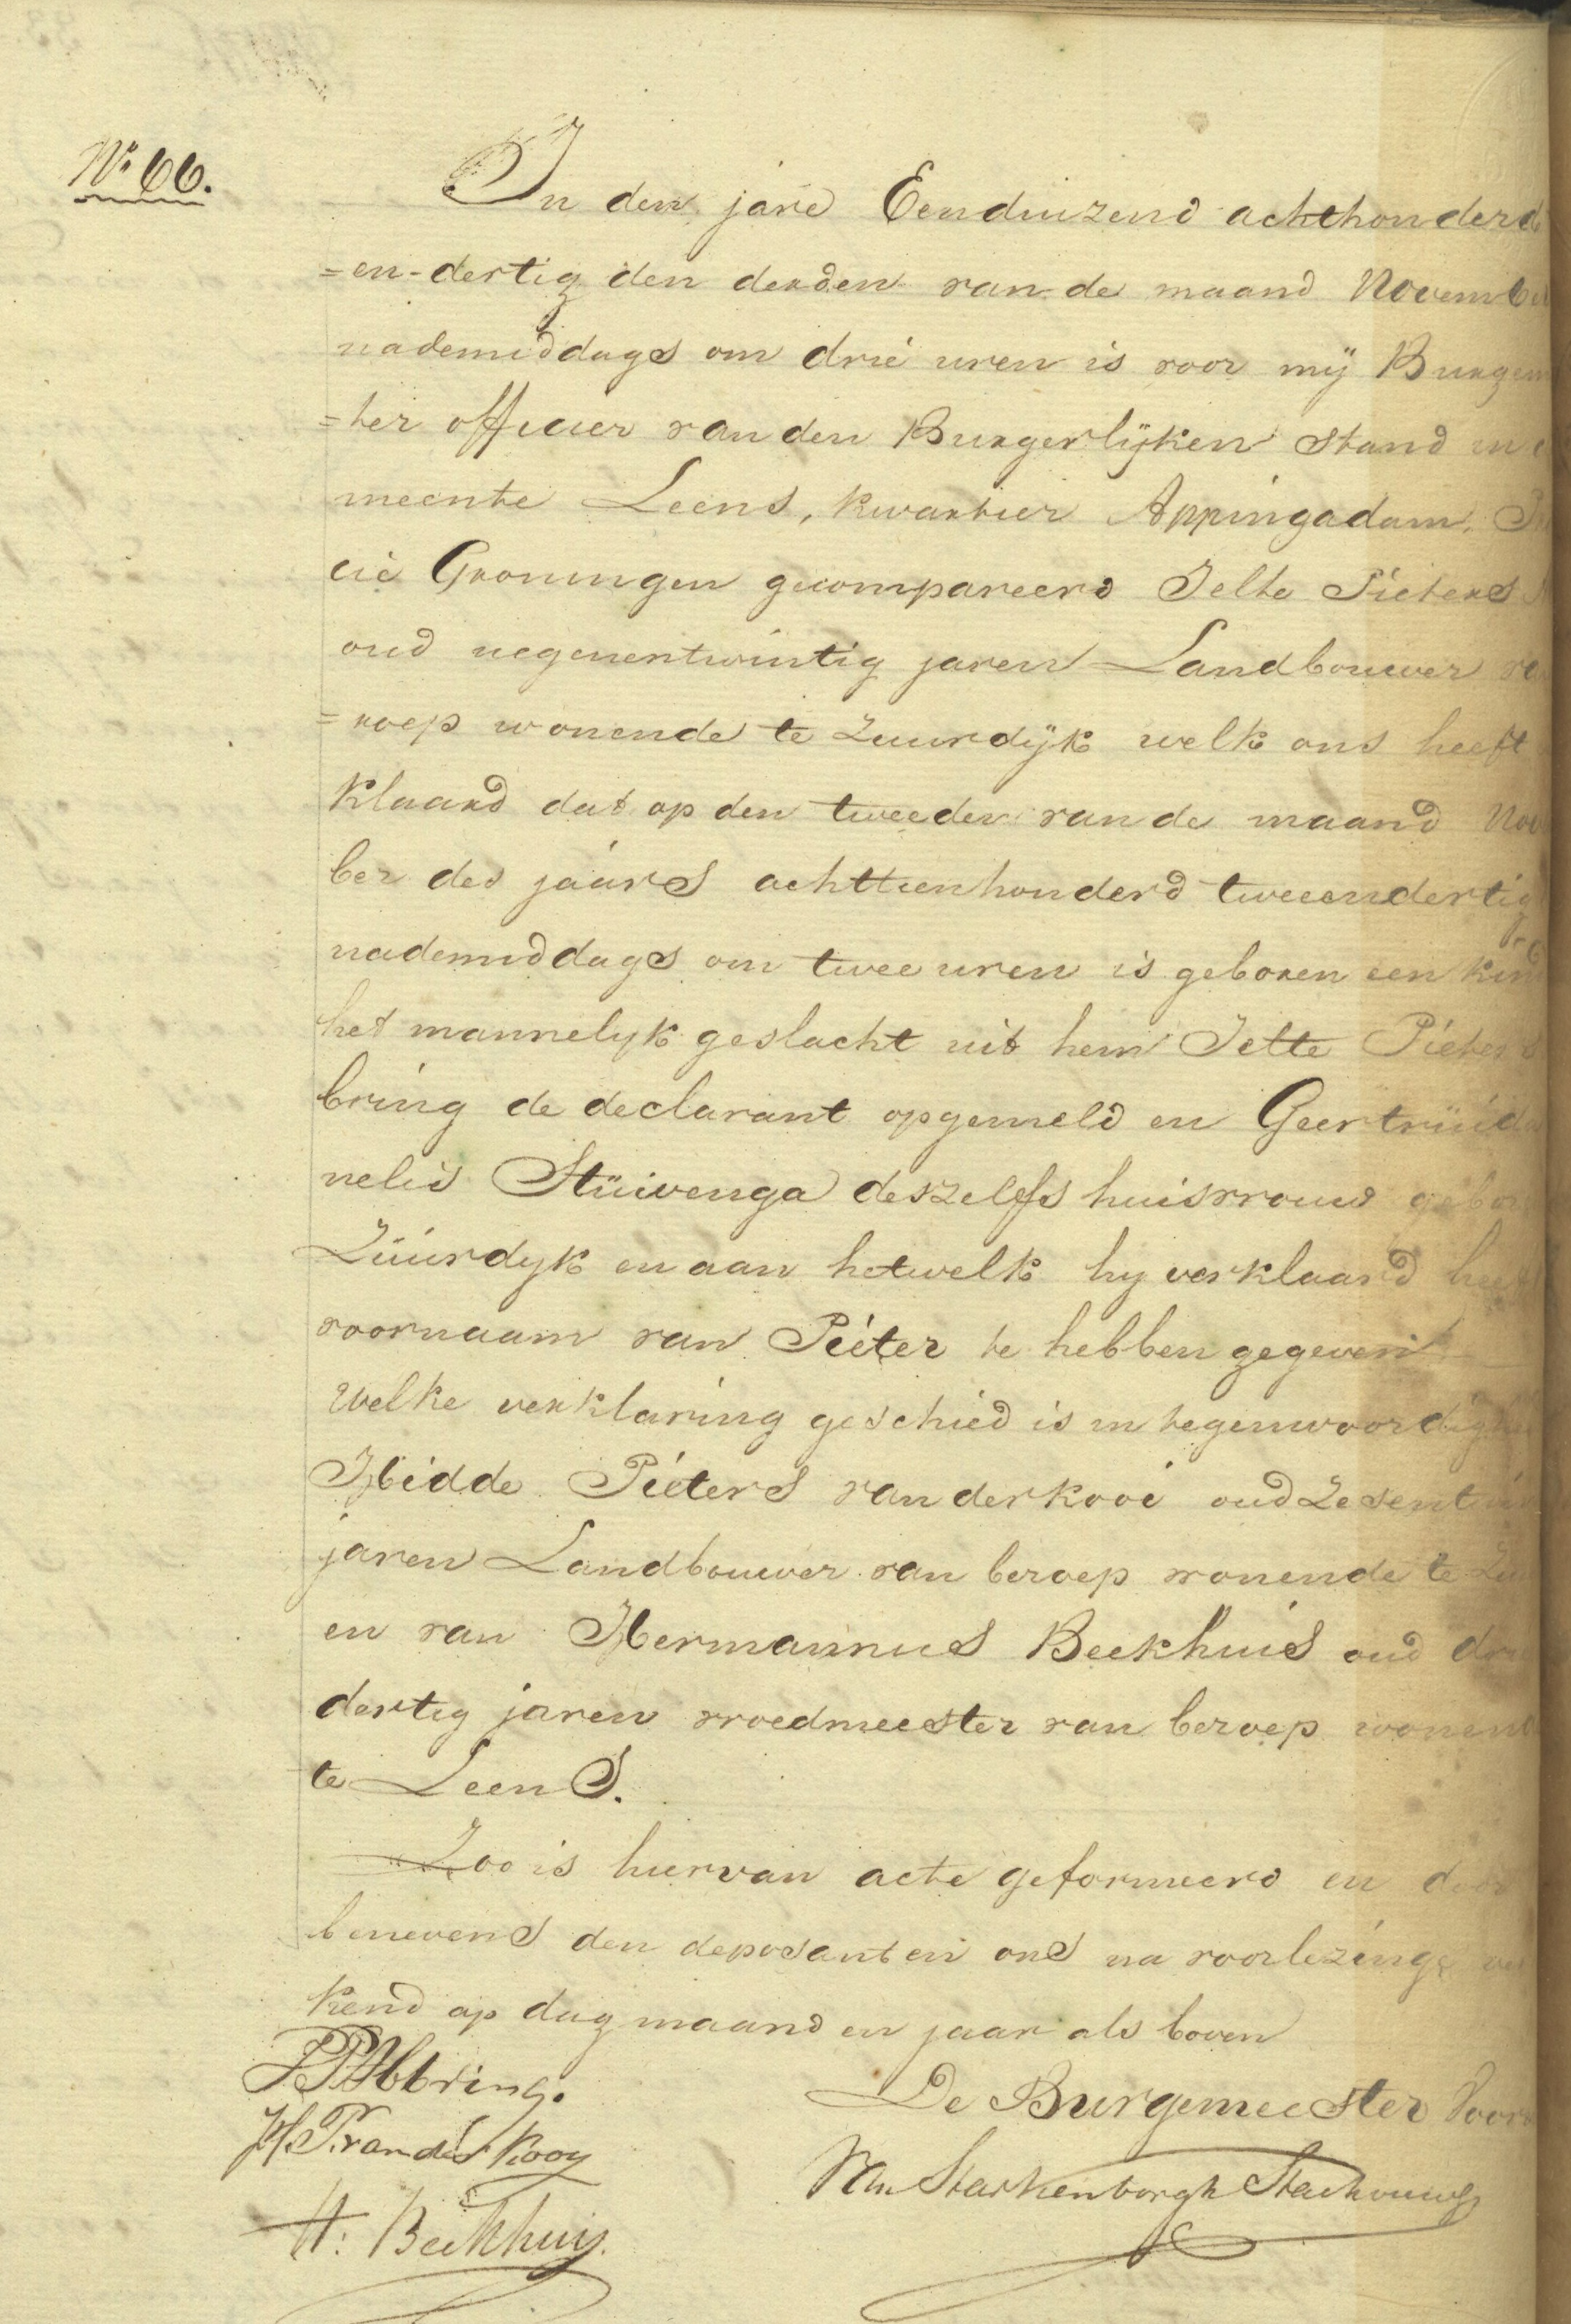 No 66.
In den jare Eenduizend achthonderd
=en-dertig den derden van de maand Novemb
nademiddags om drie uren is voor mij Burgem
=ter officier van den Burgerlijken Stand in
meente Leens, kwartier Appingadam,
cie Groningen gecompareerd Jelte Pieters
oud negenentwintig jaren Landbouwer
=roep wonende te Zuurdijk welk ons heeft
klaard dat op den tweeden van de maand Nov
ber des jaars achttienhonderd tweeendertig
nademiddags om twee uren is geboren een kind
het mannelyk geslacht uit hem Jelte Pieters
bring de declarant opgemeld en Geertruid
nelis Stuivenga deszelfs huisvrouw gebor
Zuurdyk en aan hetwelk hy verklaard heef
voornaam van Pieter te hebben gegeven
welke verklaring geschied is in tegenwoordigh
Hidde Pieters van der kooi oud Zesentwin
jaren Landbouwer van beroep wonende te Zu
en van Hermannus Beekhuis oud drie
dertig jaren vroedmeester van beroep wonend
te Leens.
Zoo is hiervan acte geformeerd en door
benevens den deposanten ons na voorlezinge
kend op dag maand en jaar als boven
J P Abbring.
De Burgemeester voorn
H. P. van der Kooy
Van Starkenborgh Stachouwer
H: Beekhuis.